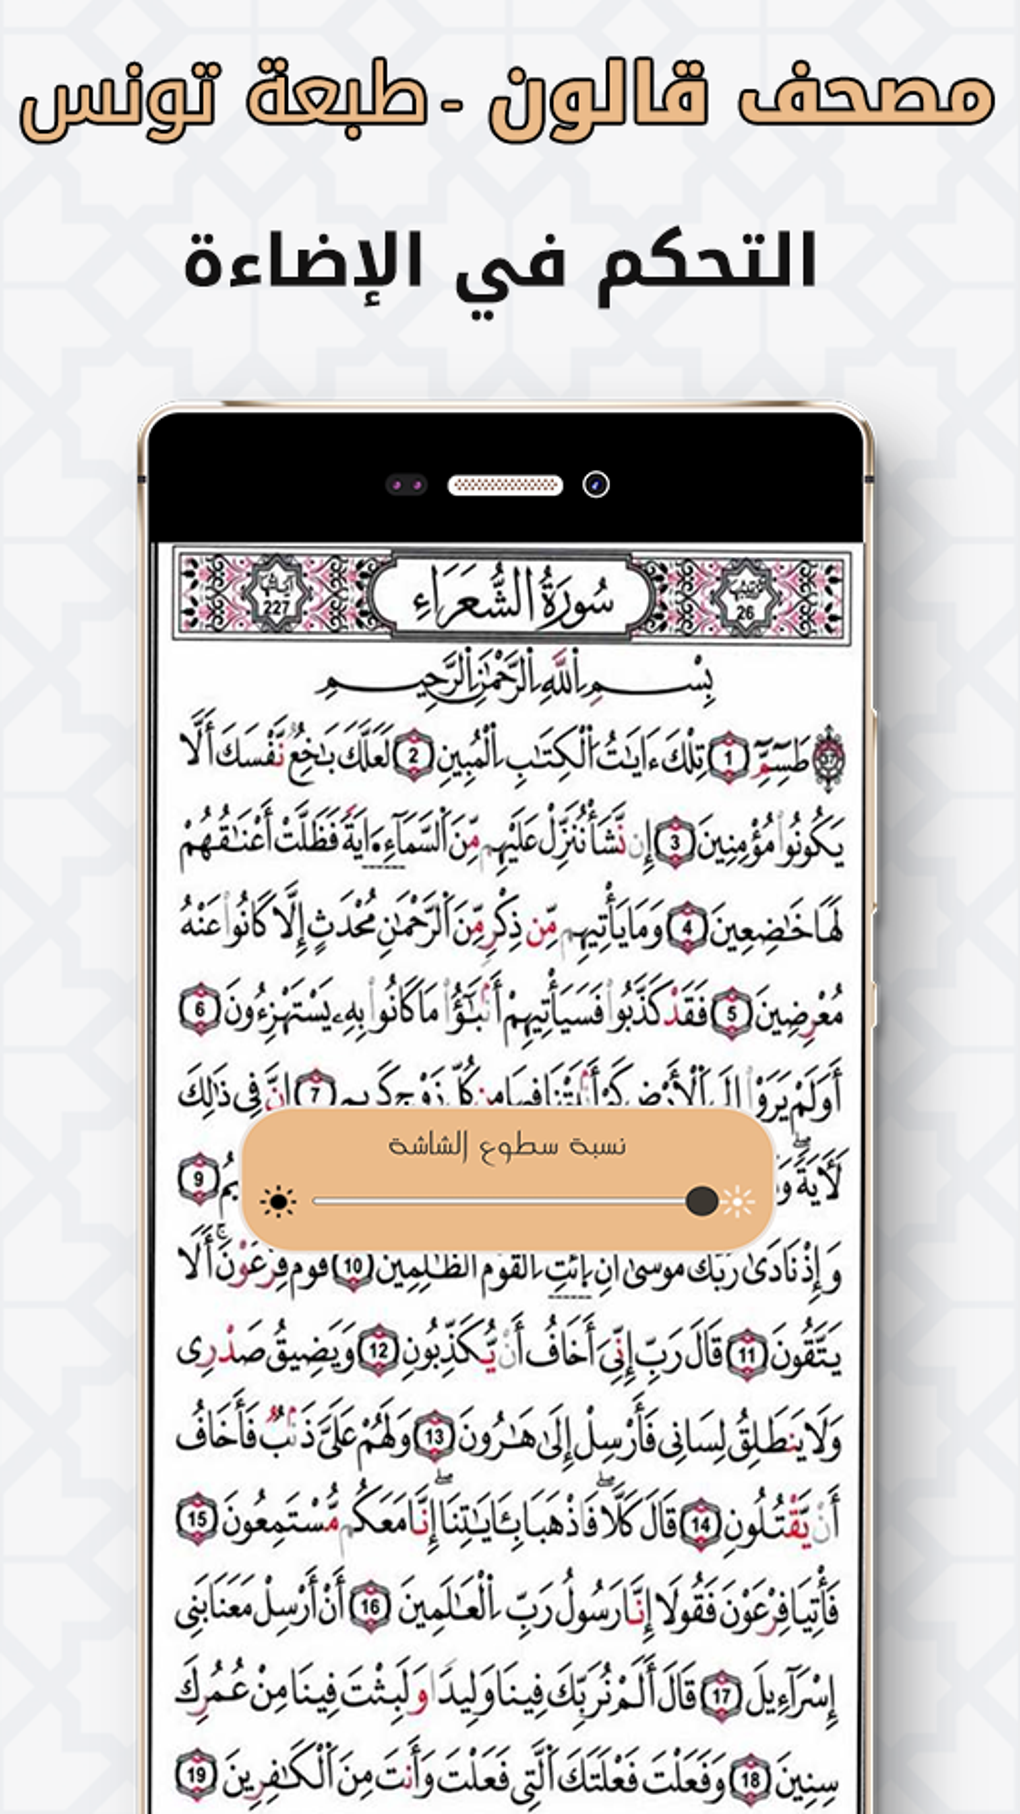 مصحف قالون - طبعة تونس
التحكم في الإضاءة
ترتيبها 26
سُورَةُ الشُّعَرَاءِ
آياتها 227
بِسْمِ اِللَّهِ اِلرَّحْمَٰنِ اِلرَّحِيمِ
طَسِٓمِّٓ 1 تِلْكَ ءَايَٰتُ اُلْكِتَٰبِ اِلْمُبِينِ 2 لَعَلَّكَ بَٰخِعٞ نَّفْسَكَ أَلَّا
يَكُونُواْ مُؤْمِنِينَ 3 إِن نَّشَأْ نُنَزِّلْ عَلَيْهِم مِّنَ اَلسَّمَآءِ ءَايَةٗ فَظَلَّتْ أَعْنَٰقُهُمْ
لَهَا خَٰضِعِينَ 4 وَمَا يَأْتِيهِم مِّن ذِكْرٖ مِّنَ اَلرَّحْمَٰنِ مُحْدَثٍ إِلَّا كَانُواْ عَنْهُ
مُعْرِضِينَ 5 فَقَدْ كَذَّبُواْ فَسَيَأْتِيهِمْ أَنۢبَٰٓؤُاْ مَا كَانُواْ بِهِۦ يَسْتَهْزِءُونَ 6
أَوَلَمْ يَرَوْاْ اِلَي اَلْأَرْضِ كَمْ أَنۢبَتْنَا فِيهَا مِن كُلِّ زَوْجٖ كَرِيمٍ 7 اِنَّ فِي ذَٰلِكَ
لَأٓيَةٗۖ 9
نسبة سطوع الشاشة
وَإِذْ نَادَىٰ رَبُّكَ مُوسَىٰ أَنِ اِئْتِ اِلْقَوْمَ اَلظَّٰلِمِينَ 10 قَوْمَ فِرْعَوْنَۚ أَلَا
يَتَّقُونَ 11 قَالَ رَبِّ إِنِّيَ أَخَافُ أَنْ يُّكَذِّبُونِ 12 وَيَضِيقُ صَدْرِي
وَلَا يَنطَلِقُ لِسَانِي فَأَرْسِلْ إِلَىٰ هَٰرُونَ 13 وَلَهُمْ عَلَيَّ ذَنۢبٞ فَأَخَافُ
أَنْ يَّقْتُلُونِ 14 قَالَ كَلَّاۖ فَاذْهَبَا بِـَٔايَٰتِنَاۖ إِنَّا مَعَكُم مُّسْتَمِعُونَ 15
فَأْتِيَا فِرْعَوْنَ فَقُولَا إِنَّا رَسُولُ رَبِّ اِلْعَٰلَمِينَ 16 أَنْ أَرْسِلْ مَعَنَا بَنِي
إِسْرَآءِيلَ 17 قَالَ أَلَمْ نُرَبِّكَ فِينَا وَلِيدٗا وَلَبِثْتَ فِينَا مِنْ عُمُرِكَ
سِنِينَ 18 وَفَعَلْتَ فَعْلَتَكَ اَلَّتِي فَعَلْتَ وَأَنتَ مِنَ اَلْكَٰفِرِينَ 19